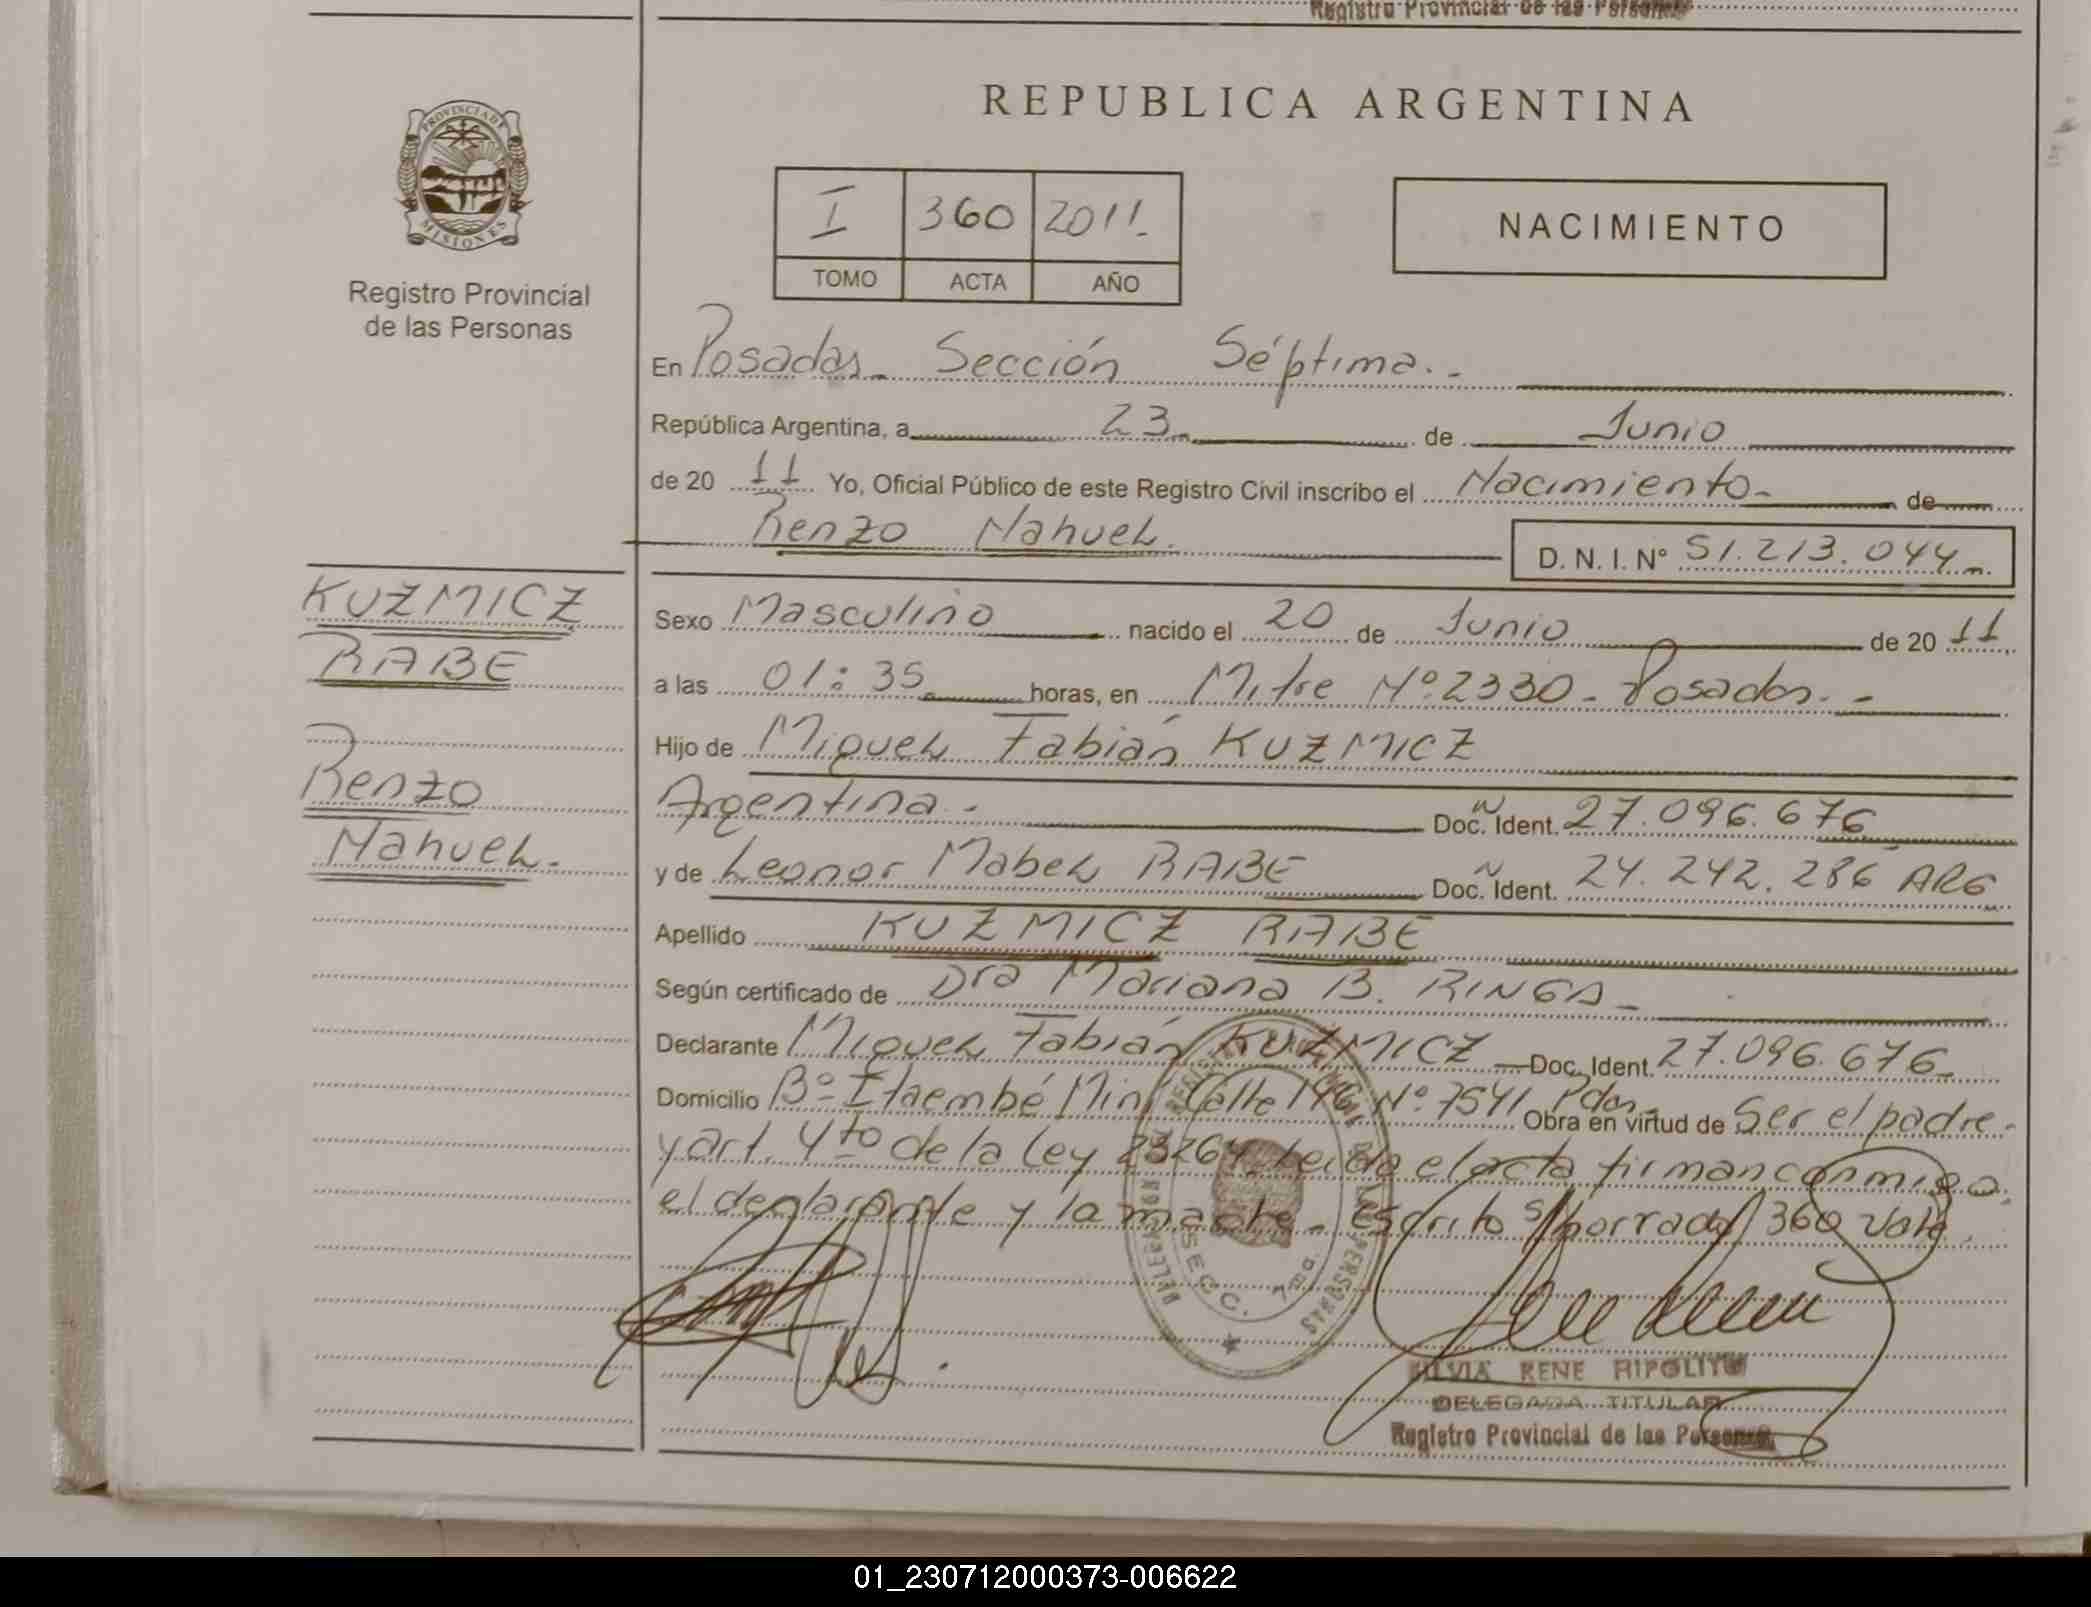 Registro Provincial de las Personas
PROVINCIA DE
MISIONES
Registro Provincial
de las Personas
REPUBLICA ARGENTINA
I 360 2011.
TOMO ACTA AÑO
NACIMIENTO
En Posadas. Sección Séptima..
República Argentina, a 23 de Junio
de 20 11 Yo, Oficial Público de este Registro Civil inscribo el Nacimiento de
Renzo Nahuel. D. N. I. Nº 51.213.044
KUZMICZ
RABE
Renzo
Nahuel.
Sexo Masculino nacido el 20 de Junio de 20 11
a las 01:35 horas, en Mitre Nº 2330 - Posadas. -
Hijo de Miguel Fabián KUZMICZ
Argentina. Doc. Ident. 27.096.676
y de Leonor Mabel RABE Doc. Ident. 24.242.286 ARG
Apellido KUZMICZ RABE
Según certificado de Dra Mariana B. RINGA
Declarante Miguel Fabián KUZMICZ Doc. Ident. 27.096.676
Domicilio Bº Itaembé Miní Calle 146 Nº 7541 Pdas Obra en virtud de Ser el padre.
y art. 4to de la Ley 23264 leida el acta firman conmigo
el declarante y la madre - escrito s/borrado/ 360 Vale.
SECC. 7ma.
SILVIA RENE HIPOLITO
DELEGADA TITULAR
Registro Provincial de las Personas
01_230712000373-006622